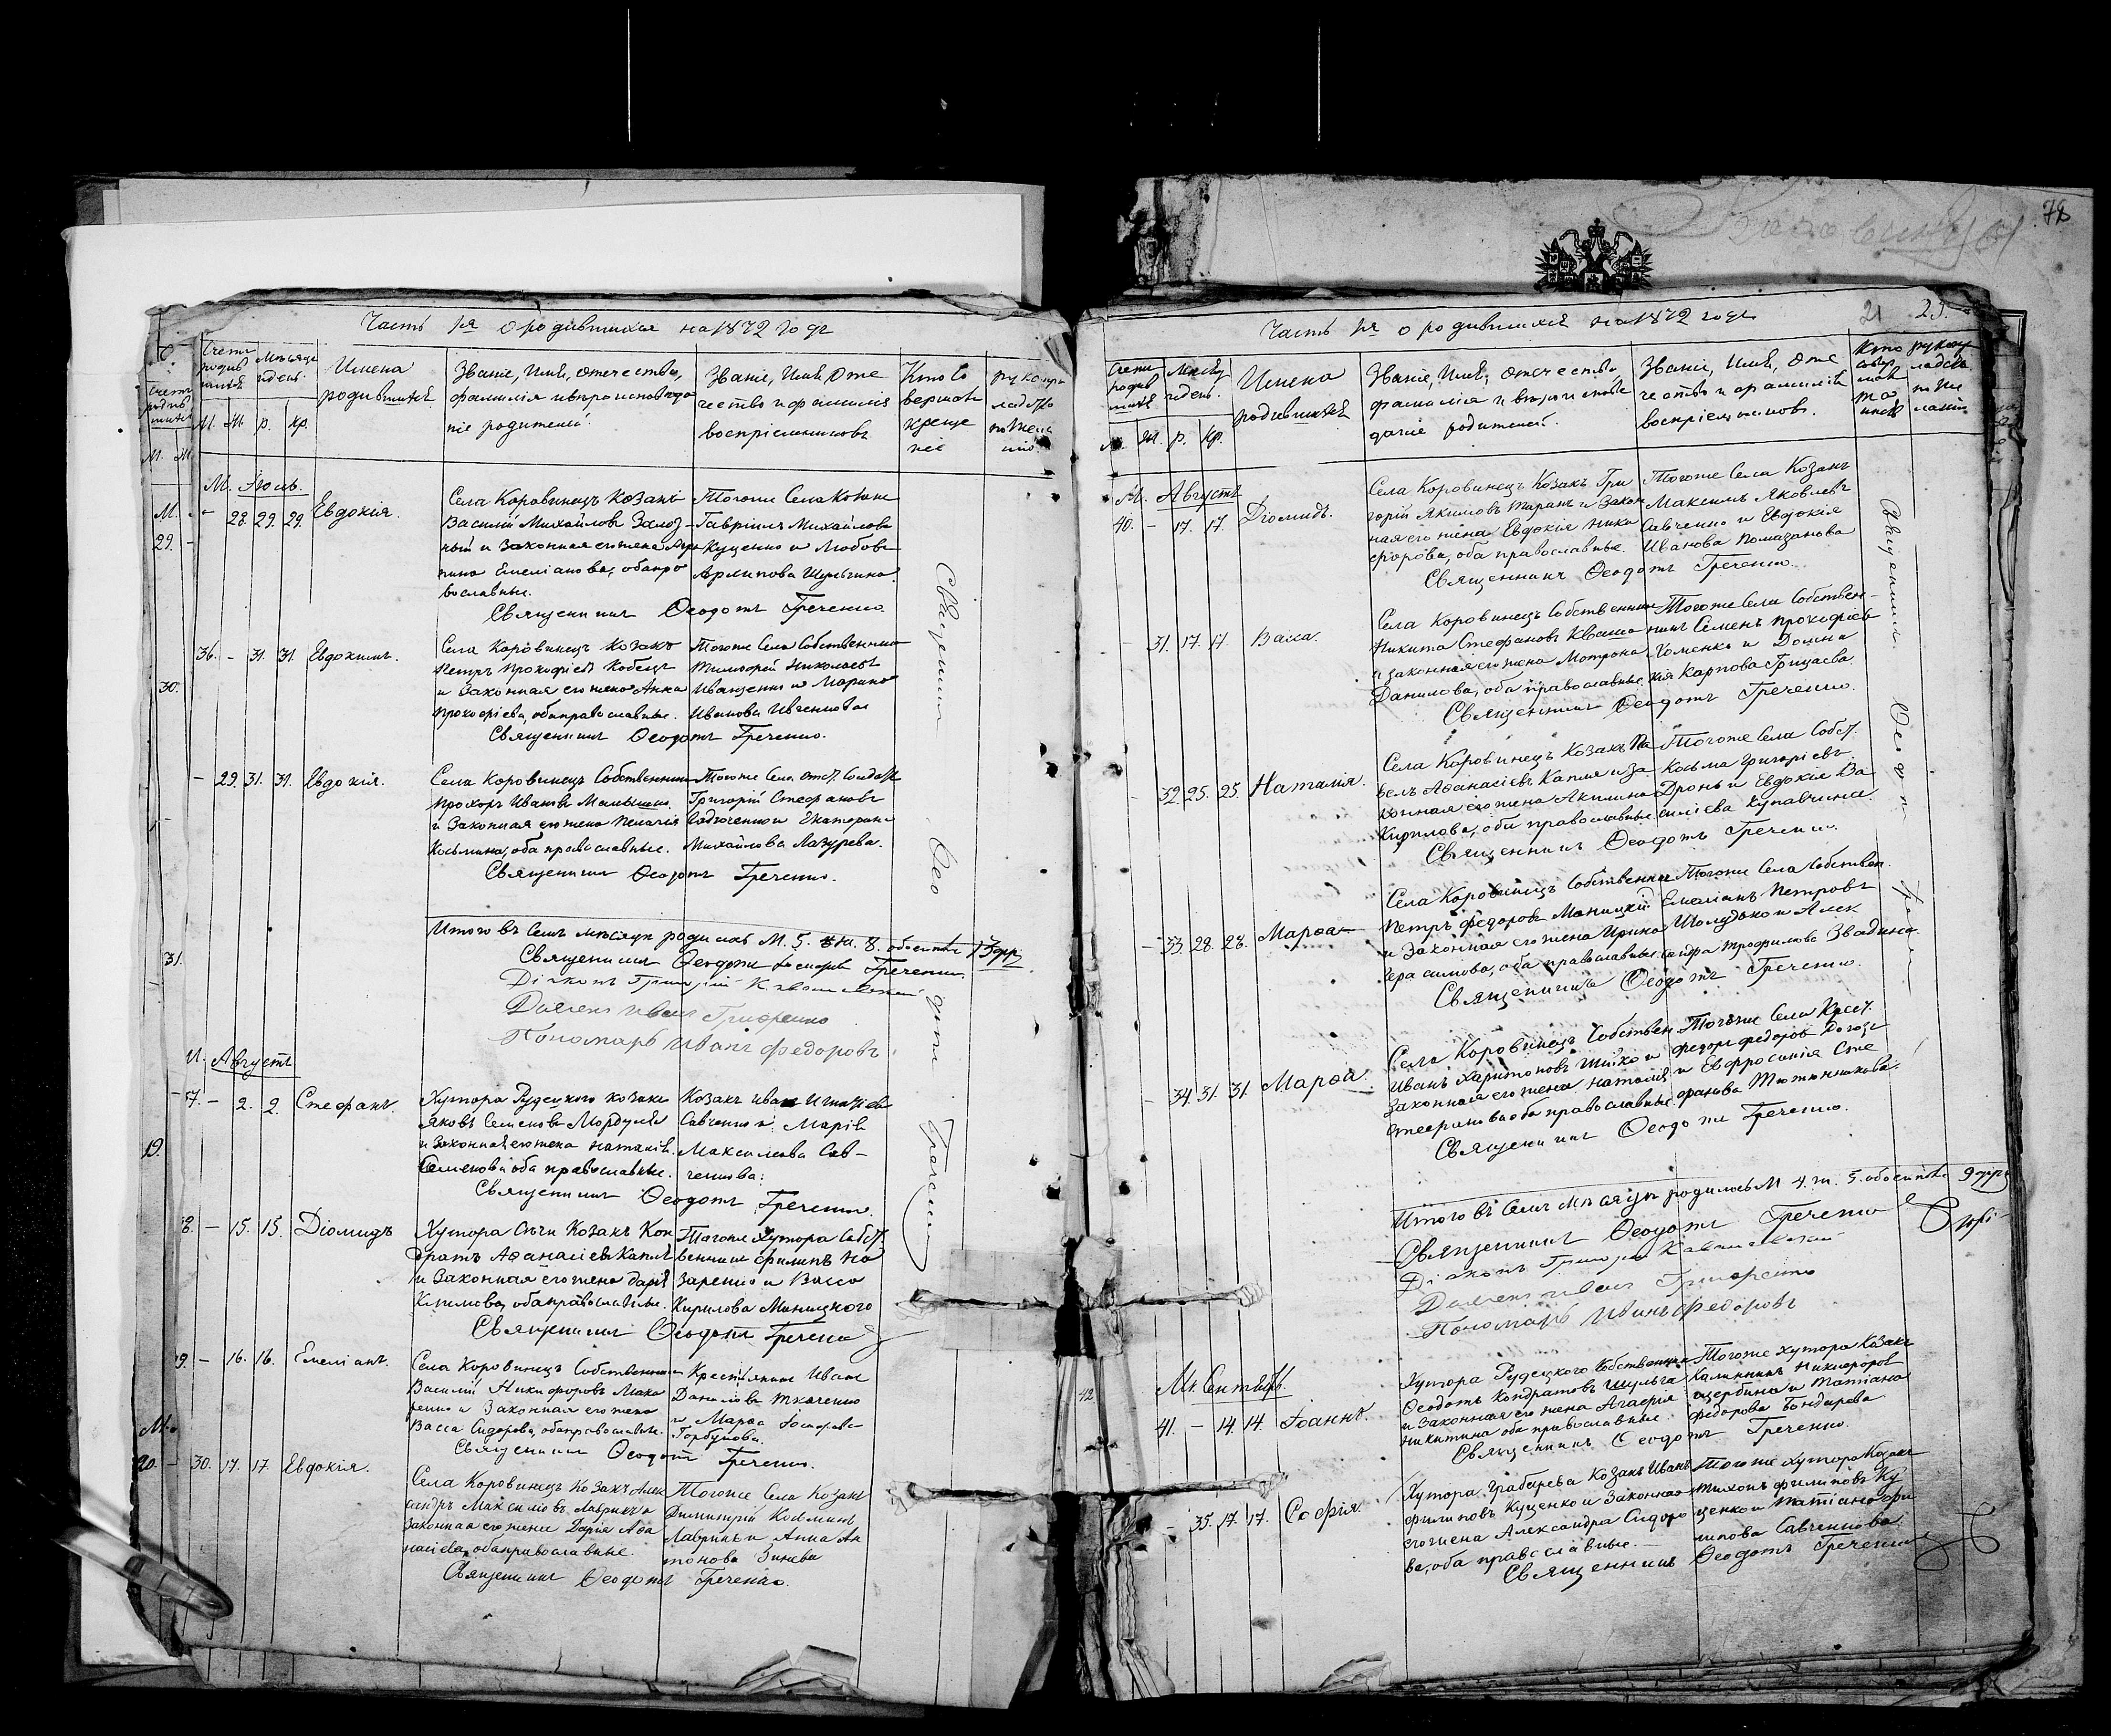 Часть 1я о родившихся на 1872 годъ
Счетъ родившихся
Мѣсяцъ и день.
Имена родившихся.
Званіе, Имя, отечество, фамилія и вѣроисповѣданіе родителей.
Званіе, Имя, Отечество и фамилія воспріемниковъ
Кто совершалъ крещеніе
М. Ж. р. кр.
М. Іюль.
- 28. 29. 29. Евдокія.
Села Коровинецъ Козакъ
Василій Михайловъ
и Законная его жена
Емеліанова, оба православные.
Тогоже Села Козакъ
Гавріилъ Михайловъ
Куценко и Любовь
Архипова
Священникъ Ѳеодотъ Греченко.
36. - 31. 31. Евдокимъ.
Села Коровинецъ Козакъ
Петръ Прокофіевъ Кобецъ
и Законная его жена Анна
Прокофіева, оба православные.
Тогоже Села Собственникъ
Тимофей Николаевъ
Иващенко и Марина
Иванова Ивченкова
Священникъ Ѳеодотъ Греченко.
- 29. 31. 31. Евдокія.
Села Коровинецъ Собственникъ
Прохоръ Ивановъ Малышко.
и Законная его жена Пелагія
Козьмина, оба православные.
Тогоже Села отст. Солдатъ
Григорій Стефановъ
и Екатерина
Михайлова Лазурева.
Священникъ Ѳеодотъ Греченко.
Итого въ семъ мѣсяцѣ родилось М. 5. Ж. 8. обоего пола 13 душъ
Священникъ Ѳеодотъ Греченко.
Діаконъ Григорій
Дьячекъ Иванъ
Пономарь Иванъ Федоровъ
М. Августъ
37. - 2. 2. Стефанъ.
Хутора Рудецкого козакъ
Яковъ Семеновъ
и Законная его жена Наталія
Семенова оба православные.
Козакъ Иванъ Игнатіевъ
Савченко и Марія
Максимова Сав-
ченкова.
Священникъ Ѳеодотъ Греченко.
38. - 15. 15. Діомидъ
Хутора Сѣчи Козакъ Кон
дратъ Аѳанасіевъ Капля
и Законная его жена Дарія
Климова, оба православные.
Тогоже Хутора Собст
венникъ Филипъ На
заренко и Васса
Кирилова Миницкого
Священникъ Ѳеодотъ Греченко
39. - 16. 16. Емеліанъ.
Села Коровинецъ Собственникъ
Василій Никифоровъ Мака
ренко и Законная его жена
Васса Сидорова, оба православные.
Крестьянинъ Иванъ
Даниловъ Ткаченко
и Марѳа
Горбунова.
Священникъ Ѳеодотъ Греченко.
- 30. 17. 17. Евдокія.
Села Коровинецъ Козакъ Алек
сандръ Максимовъ Лавринъ и
Законная его жена Дарія Аѳа
насіева, оба православные.
Тогоже Села Козакъ
Димитрій Козьминъ
Лавринъ и Анна Ан
тонова Зинева
Священникъ Ѳеодотъ Греченко.
Священникъ Ѳеодотъ Греченко
78
Часть 1я о родившихся на 1872 годъ
21 25.
Счетъ родившихся
Мѣсяцъ и день.
Имена родившихся
Званіе, Имя, Отечество, фамилія и вѣроисповѣданіе родителей.
Званіе, Имя, Отечество и фамилія воспріемниковъ.
М. Ж. р. кр.
М. Августъ
40. - 17. 17. Діомидъ.
Села Коровинецъ Козакъ Гри
горій Якимовъ Таранъ и Закон
ная его жена Евдокія Ники
форова, оба православные.
Тогоже Села Козакъ
Максимъ Яковлевъ
Савченко и Евдокія
Иванова Помазанова
Священникъ Ѳеодотъ Греченко.
- 31. 17. 17. Васса.
Села Коровинецъ Собственникъ
Никита Стефановъ Кваша
и законная его жена Мотрона
Данилова, оба православные.
Тогоже Села Собствен-
никъ Семенъ Прокофіевъ
Хоменко и Домни
кія Карпова Грицаева.
Священникъ Ѳеодотъ Греченко.
- 32. 25. 25. Наталія.
Села Коровинецъ Козакъ Па
велъ Аѳанасіевъ Капля и за
конная его жена Акилина
Кирилова, оба православные
Тогоже Села Собст.
Косьма Григоріевъ
Дронь и Евдокія Ва
силіева Купавчина.
Священникъ Ѳеодотъ Греченко.
- 33. 28. 28. Марѳа
Села Коровинецъ Собственникъ
Петръ Федоровъ Маницкій
и Законная его жена Ирина
Герасимова, оба православные.
Тогоже Села Собствен.
Емеліанъ Петровъ
Шолудько и Алек
сандра Трофимова Звадина.
Священникъ Ѳеодотъ Греченко.
- 34. 31. 31. Марѳа.
Села Коровинецъ Собствен
Иванъ Харитоновъ
Законная его жена Наталія
Стефанова оба православные.
Тогоже Села Крест.
Федоръ Федоровъ
и Евфросинія Сте
фанова Тютюнникова.
Священникъ Ѳеодотъ Греченко.
Итого въ семъ мѣсяцѣ родилось М 4. Ж. 5. обоего пола 9 душъ
Священникъ Ѳеодотъ Греченко
Діаконъ Григорій
Дьячекъ Иванъ
Пономарь Иванъ Федоровъ
М. Сентябрь.
41. - 14. 14. Іоаннъ.
Хутора Рудецкого Собственникъ
Ѳеодотъ Кондратовъ Шульга
и Законная его жена Агафія
Никитина оба православные.
Тогоже хутора Козакъ
Калинникъ Никифоровъ
Щербина и Татіана
Федорова Бондарева
Священникъ Ѳеодотъ Греченко.
- 35. 17. 17. Софія.
Хутора Грабарева Козакъ Иванъ
Филиповъ Куценко и Законная
его жена Александра Сидоро
ва, оба православные.
Тогоже Хутора Козакъ
Тихонъ Филиповъ Ку
ценко и Татіана Фи
липова Савченкова.
Священникъ Ѳеодотъ Греченко
Священникъ Ѳеодотъ
42